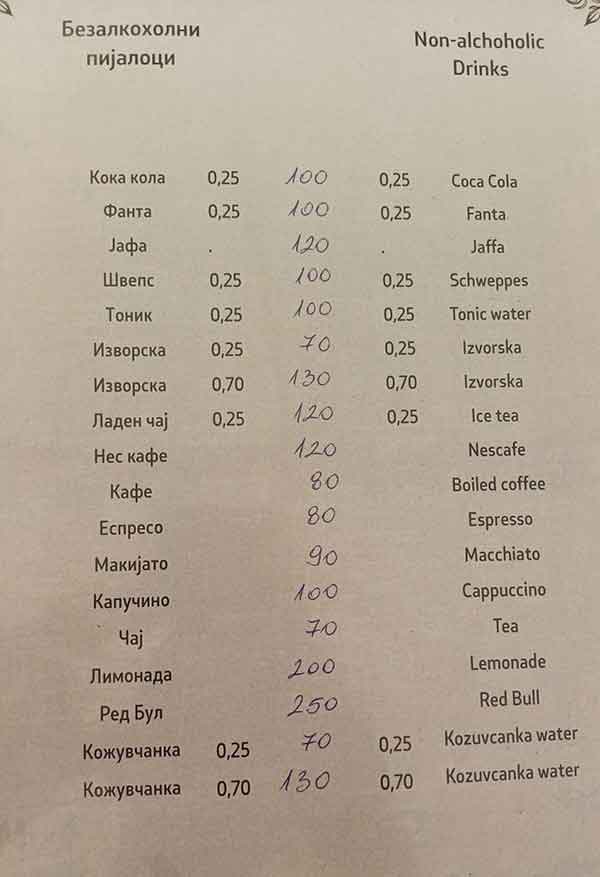 Безалкохолни
пијалоци
Non-alchoholic
Drinks
Кока кола 0,25 100 0,25 Coca Cola
Фанта 0,25 100 0,25 Fanta
Јафа . 120 . Jaffa
Швепс 0,25 100 0,25 Schweppes
Тоник 0,25 100 0,25 Tonic water
Изворска 0,25 70 0,25 Izvorska
Изворска 0,70 130 0,70 Izvorska
Ладен чај 0,25 120 0,25 Ice tea
Нес кафе 120 Nescafe
Кафе 80 Boiled coffee
Еспресо 80 Espresso
Макијато 90 Macchiato
Капучино 100 Cappuccino
Чај 70 Tea
Лимонада 200 Lemonade
Ред Бул 250 Red Bull
Кожувчанка 0,25 70 0,25 Kozuvcanka water
Кожувчанка 0,70 130 0,70 Kozuvcanka water